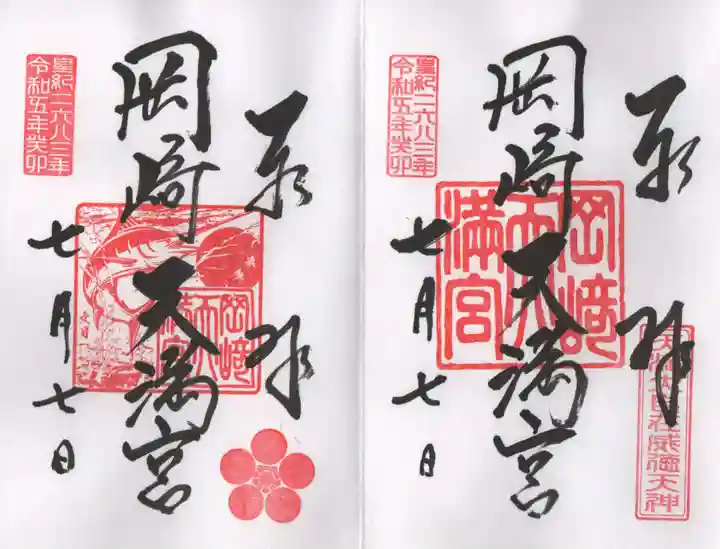 奉拝
岡崎天満宮
七月七日
皇紀二六八三年
令和五年癸卯
岡崎天満宮
文月
奉拝
岡崎天満宮
七月七日
皇紀二六八三年
令和五年癸卯
岡崎天満宮